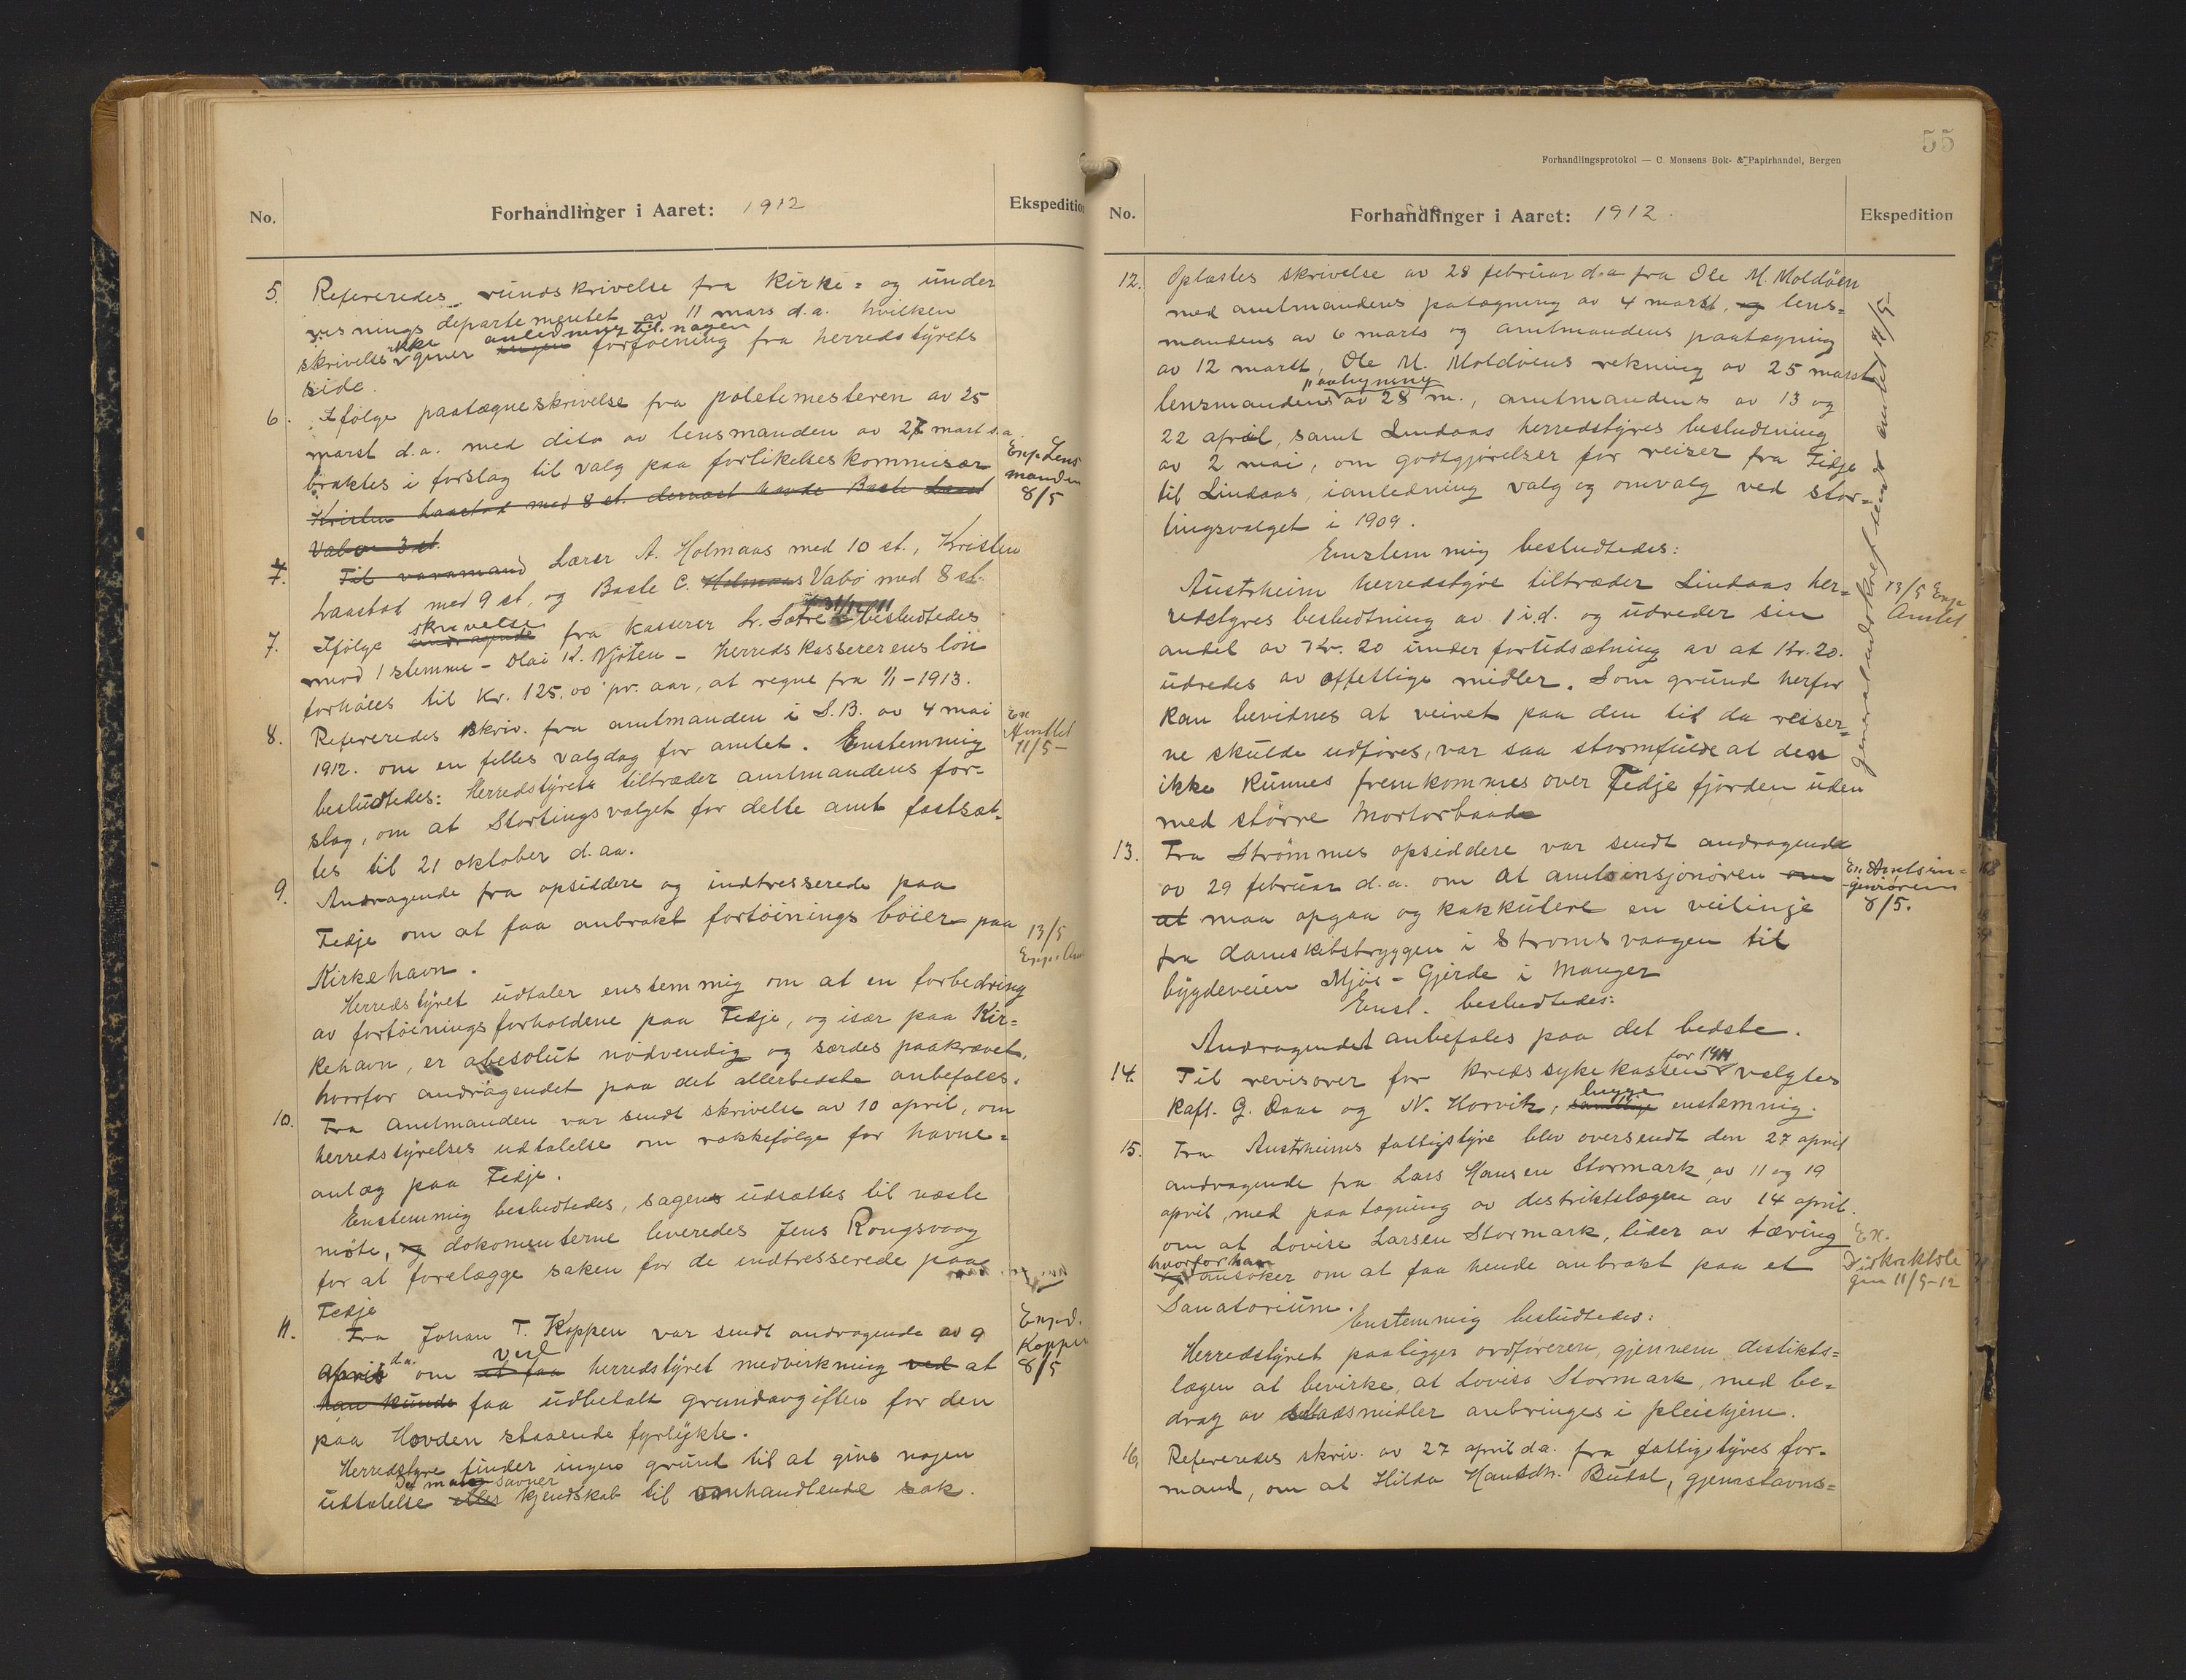 No.
Forhandlinger i Aaret: 1912
Ekspedition
5. Refereredes rundskrivelse fra Kirke= og under
visnings departementet av 11 mars d.a. hvilken
skrivelse ikke giver anledning til nogen forføining fra herredstyrets
side.
6. Ifølge paategneskrivelse fra poletimesteren av 25
marst d.a. med dito av lensmanden av 27 mart d.a.
braktes i forslag til valg paa forlikelseskommisær
Kristen Laastad med 8 st. dernæst havde Baste
Vabø 3 st.
Exp. Lens
manden
8/5
7. Til varamand Lærer A. Holmaas med 10 st., Kristen
Laastad med 9 st, og Baste C. Holmaas Vabø med 8 st.
7. Ifølge andragende skrivelse fra Kasserer L. Sætre 31/12 11 besluttedes
mod 1 stemme - Olai K. Njøten - Herredskassererens løn
forhøies til Kr. 125.00 pr. aar, at regne fra 1/1-1913.
8. Refereredes skriv. fra amtmanden i S.B. av 4 mai
1912. om en felles valgdag for amtet. Enstemmig
besluttedes: Herredstyrets tiltræder amtmandens for-
slag, om at Stortingsvalget for dette amt fastsæt-
tes til 21 oktober d.aa.
Ex
Amtet
11/5-
9. Andragende fra opsiddere og indtresserede paa
Fedje om at faa anbrakt fortöinings böier paa
Kirkehavn.
13/5
Exp. Am
Herredstyret udtaler enstemmig om at en forbedring
av fortöiningsforholdene paa Fedje, og især paa Kir=
kehavn, er abesolut nødvendig og særdes paakrævet,
hvorfor andragendet paa det allerbedste anbefales.
10. Fra amtmanden var sendt skrivelse av 10 april, om
herredstyrelses udtalelse om rækkefølge for havne=
anlæg paa Fedje.
Enstemmig besluttedes, sagens udsættes til næste
møte, og dokomenterne leveredes Jens Rongsvaag
for at forelægge saken for de indtresserede paa
Fedje
11. Fra Johan T. Koppen var sendt andragende av 9
april d.a. om at faa ved herredstyret medvirkning ved at
han kunde faa udbetalt grundavgiften for den
paa Hovden staaende fyrlykte.
Exp.d.
Koppen
8/5
Herredstyre finder ingen grunt til at give nogen
udtalelse eller Da man savner kjendskab til omhandlende sak.
55
Forhandlingsprotokol — C. Monsens Bok- & Papirhandel, Bergen
No.
Forhandlinger i Aaret: 1912.
Ekspedition
12. Oplæstes skrivelse av 28 februar d.a fra Ole M. Moldöen
med amtmandens patægning av 4 marst, og lens=
mandens av 6 marts og amtmandens paategning
av 12 marst, Ole M. Moldöens rekning av 25 marst
lensmandens paategning av 28 m., amtmandens av 13 og
22 april, samt Lindaas herredstyres besludtning
av 2 mai, om godtgjørelser for reiser fra Fedje
til Lindaas, ianledning valg og omvalg ved stor=
tingsvalget i 1909.
Enstemmig besludtedes:
Austrheim herredstyre tiltræder Lindaas her=
redstyres besludtning av 1 i.d. og udreder sin
andel av Kr. 20 under fortudsætning av at Kr. 20.
udredes av offetlige midler. Som grund herfor
kan bevidnes at veiret paa den tid da reiser=
ne skulde udføres, var saa stormfulde at den
ikke kunnes fremkommes over Fedje fjorden uden
med større Mortorbaade
13/5 Exp
Amtet.
13. Fra Strømmes opsiddere var sendt andragende
av 29 februar d.a. om at amtsinsjonören om
at maa opgaa og kakkulere en veilinje
fra damskibsbryggen i Stromsvaagen til
bygdeveien Mjös - Gjerde i Manger
Enst. besludtedes:
Andragendet anbefales paa det bedste.
Ex. Amtsin=
geniören
8/5.
14. Til revisorer for kredssykekassen for 1911 valgtes
Kaft. G. Daae og N. Horvik, samtlige begge enstemmig.
15. Fra Austrheims fattigstyre blev oversendt den 27 april
andragende fra Lars Hansen Stormark av 11 og 19
april, med paategning av destriktslægen av 14 april.
om at Lovise Larsen Stormark, lider av tæring
og hvorfor han ansöker om at faa hende anbrakt paa et
Sanatorium.
Ex.
Distriktslæ
gen 11/5-12
Enstemmig besludtedes:
Herredstyret paaligger ordföreren, gjennem distikts=
lægen at bevirke, at Lovise Stormark, med be=
drag av stadsmidler anbringes i pleiehjem.
16. Refereredes skriv. av 27 april d.a. fra fattigstyres for=
mand, om at Hilda Hansdtr. Butal, gjenstavns=